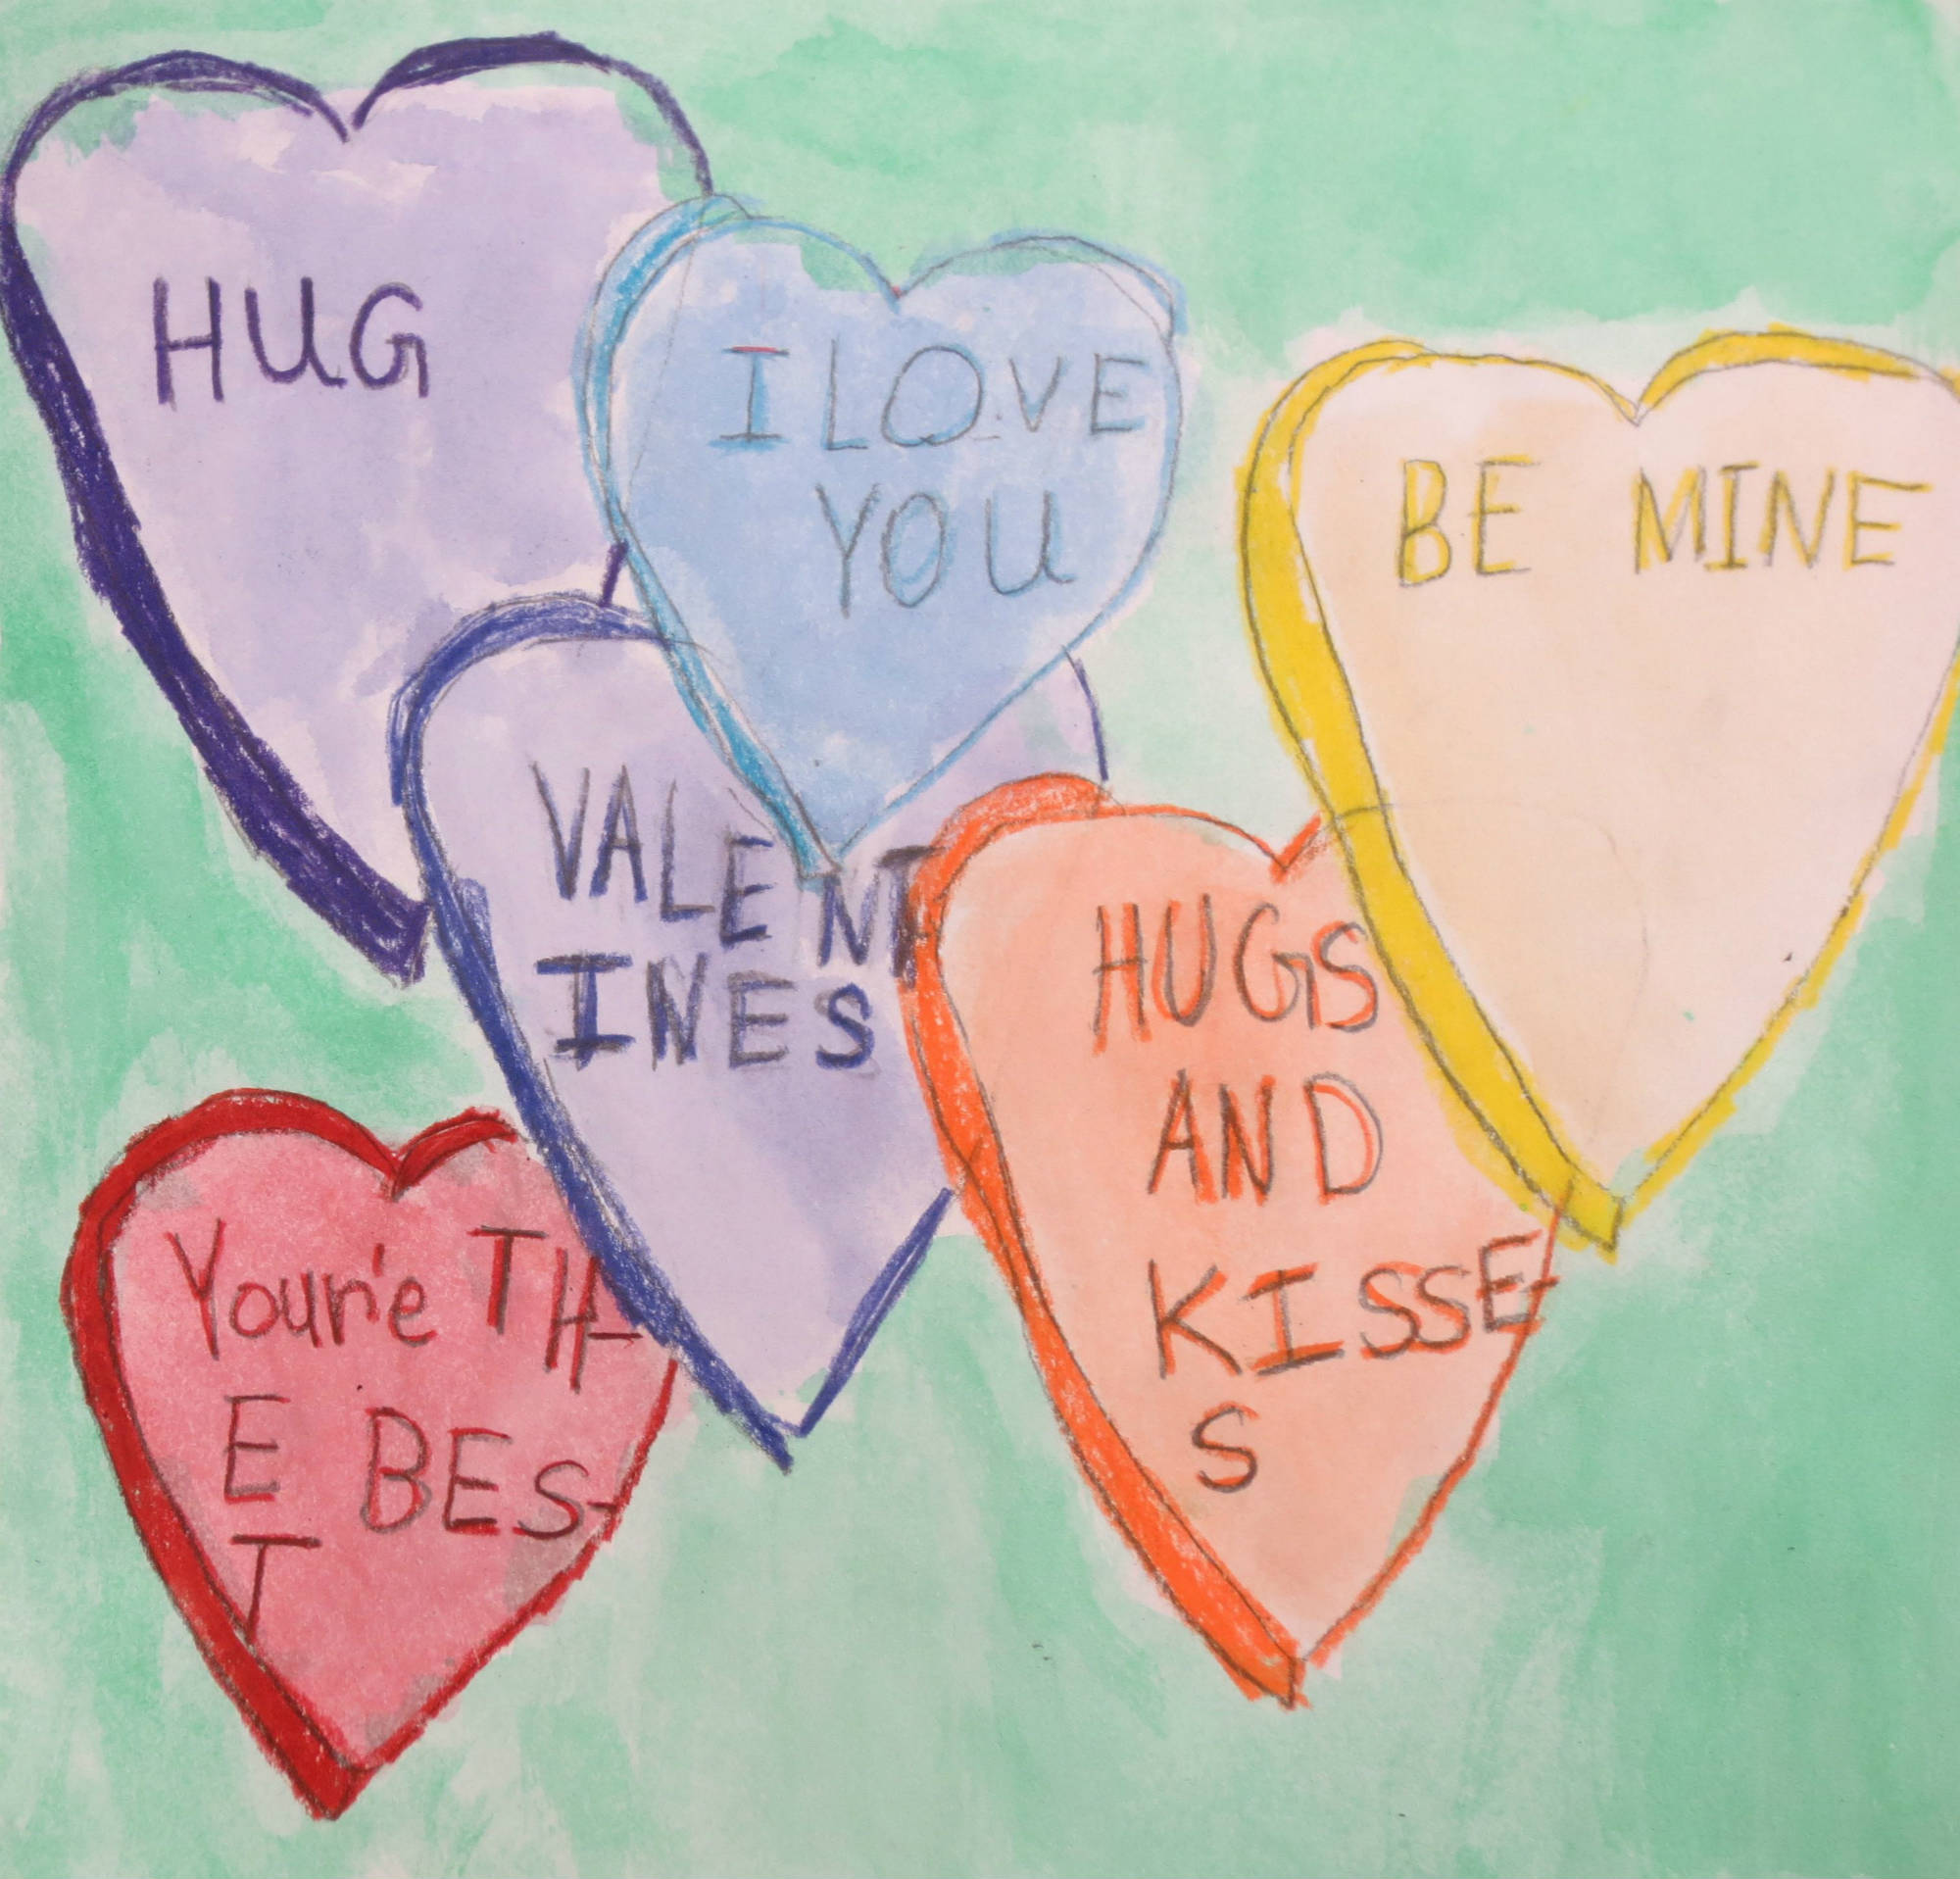 HUG
I LOVE
YOU
BE MINE
VALENT
INES
HUGS
AND
KISSE-
S
Your'e TH-
E BES-
T